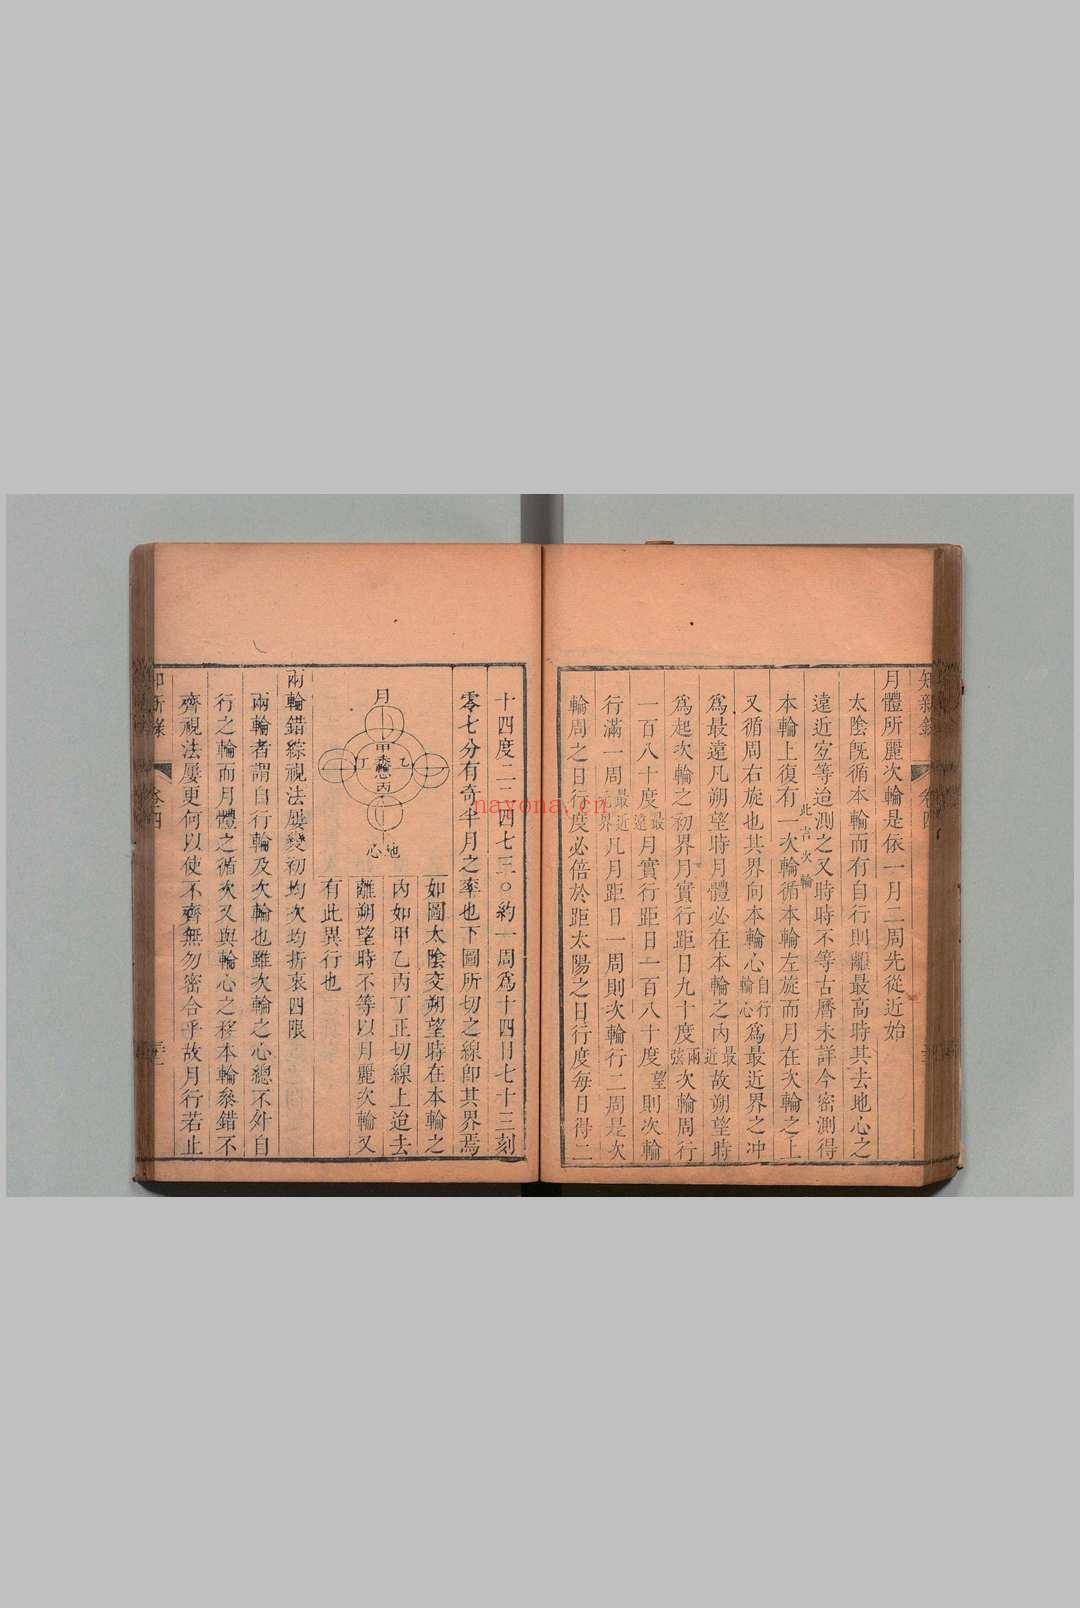 知新錄
卷四
月體所麗次輪是依一月二周先從近始
太陰旣循本輪而有自行則離最高時其去地心之
遠近宜等迨測之又時時不等古曆未詳今密測得
本輪上復有一次輪循本輪左旋而月在次輪之上
此言次輪
又循周右旋也其界向本輪心自行輪心爲最近界之冲
爲最遠凡朔望時月體必在本輪之內最近故朔望時
爲起次輪之初界月實行距日九十度兩弦次輪周行
一百八十度最遠月實行距日一百八十度望則次輪
行滿一周最近元界凡月距日一周則次輪行二周是次
輪周之日行度必倍於距太陽之日行度每日得二
十四度二二四七三〇約一周爲十四日七十三刻
零七分有奇半月之率也下圖所切之線卽其界焉
月
甲
本輪心
乙
丙
丁
地心
如圖太陰交朔望時在本輪之
內如甲乙丙丁正切線上迨去
離朔望時不等以月麗次輪又
有此異行也
兩輪錯綜視法屢變初均次均折衷四限
兩輪者謂自行輪及次輪也雖次輪之心總不外自
行之輪而月體之循次又與輪心之移本輪參錯不
齊視法屢更何以使不齊無勿密合乎故月行若止
卷四
nayona.cn